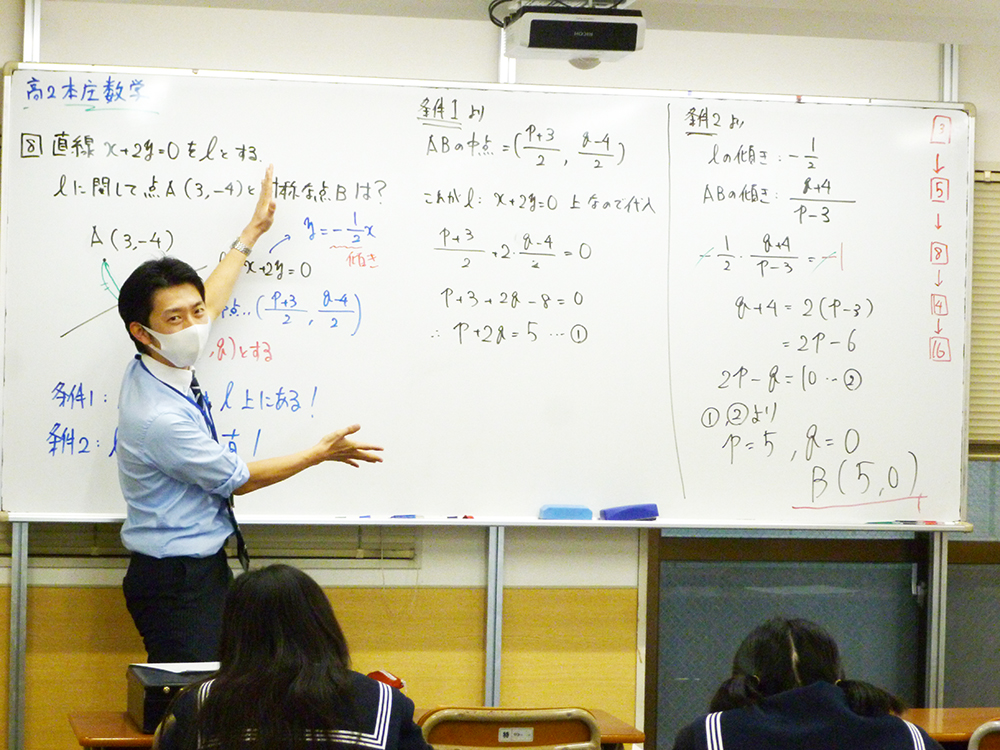 高2本庄数学
8 直線 x+2y=0 をlとする.
lに関して点A(3,-4)と対称な点Bは?
A(3,-4)
y=-1/2x
傾き
x+2y=0
点‥(p+3/2, q-4/2)
,q)とする
条件1: l上にある!
条件2: l 直!
条件1より
ABの中点=(p+3/2, q-4/2)
これがl: x+2y=0 上なので代入
p+3/2+2・q-4/2=0
p+3+2q-8=0
∴ p+2q=5 …①
条件2より
lの傾き:-1/2
ABの傾き: q+4/p-3
-1/2・q+4/p-3=-1
q+4=2(p-3)
=2p-6
2p-q=10…②
①,②より
p=5, q=0
B(5,0)
3
↓
5
↓
8
↓
14
↓
16
RICOH